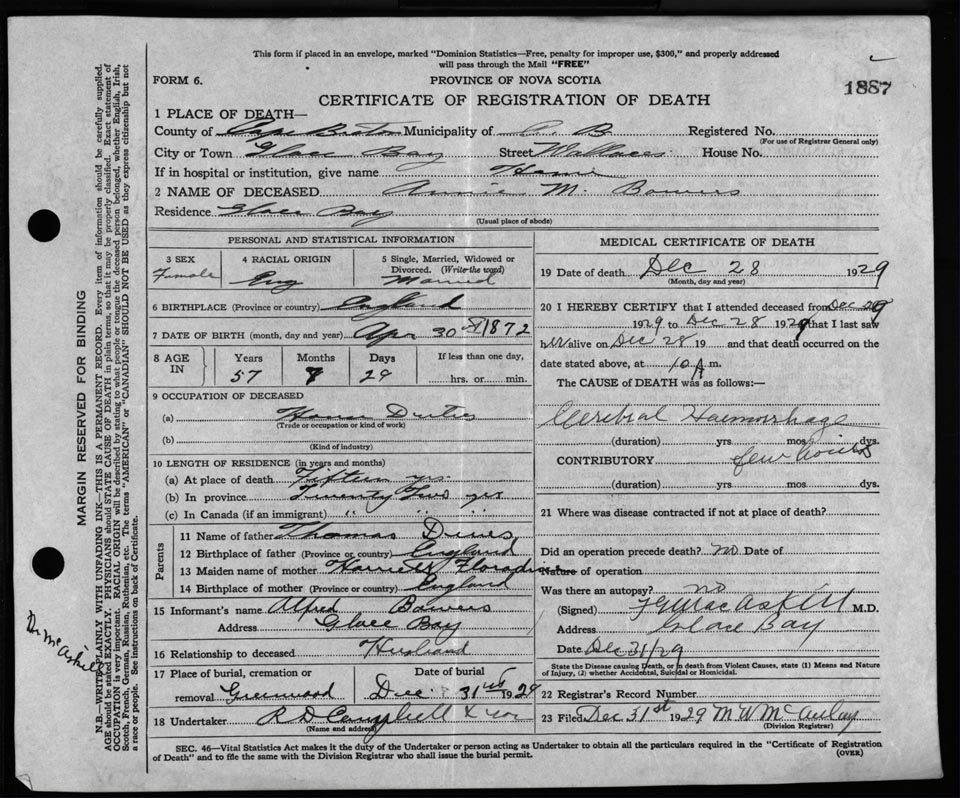 This form if placed in an envelope, marked "Dominion Statistics—Free, penalty for improper use, $300," and properly addressed
will pass through the Mail "FREE"
FORM 6.
PROVINCE OF NOVA SCOTIA
1887
CERTIFICATE OF REGISTRATION OF DEATH
1 PLACE OF DEATH—
County of Cape Breton Municipality of C. B Registered No.
(For use of Registrar General only)
City or Town Glace Bay Street Wallaces House No.
If in hospital or institution, give name Home
2 NAME OF DECEASED Annie M. Bowers
Residence Glace Bay
(Usual place of abode)
PERSONAL AND STATISTICAL INFORMATION
3 SEX
Female
4 RACIAL ORIGIN
Eng
5 Single, Married, Widowed or
Divorced. (Write the word)
Married
6 BIRTHPLACE (Province or country) England
7 DATE OF BIRTH (month, day and year) Apr 30 1872
8 AGE
IN
Years
57
Months
Days
29
If less than one day,
hrs. or min.
9 OCCUPATION OF DECEASED
(a) House Duties
(Trade or occupation or kind of work)
(b)
(Kind of industry)
10 LENGTH OF RESIDENCE (in years and months)
(a) At place of death Fifteen yrs.
(b) In province Twenty Two yrs
(c) In Canada (if an immigrant) " " "
Parents
11 Name of father Thomas Dines
12 Birthplace of father (Province or country) England
13 Maiden name of mother Harriet
14 Birthplace of mother (Province or country) England
15 Informant's name Alfred Bowers
Address Glace Bay
16 Relationship to deceased Husband
17 Place of burial, cremation or
removal Greenwood
Date of burial
Dec 31st 1929
18 Undertaker R D Campbell &
(Name and address)
MEDICAL CERTIFICATE OF DEATH
19 Date of death Dec 28 1929
(Month, day and year)
20 I HEREBY CERTIFY that I attended deceased from Dec 28
1929 to Dec 28 1929 that I last saw
her alive on Dec 28 19 and that death occurred on the
date stated above, at 10 A m.
The CAUSE of DEATH was as follows:—
Cerebral Haemorrhage
(duration) yrs mos dys.
CONTRIBUTORY few hours
(duration) yrs mos dys.
21 Where was disease contracted if not at place of death?
Did an operation precede death? no Date of
Nature of operation
Was there an autopsy? no
(Signed) MacAskill M.D.
Address Glace Bay
Date Dec 31/29
State the Disease causing Death, or in death from Violent Causes, state (1) Means and Nature
of Injury, (2) whether Accidental, Suicidal or Homicidal.
22 Registrar's Record Number
23 Filed Dec 31st 1929 M W McAulay
(Division Registrar)
SEC. 46—Vital Statistics Act makes it the duty of the Undertaker or person acting as Undertaker to obtain all the particulars required in the "Certificate of Registration
of Death" and to file the same with the Division Registrar who shall issue the burial permit.
(OVER)
MARGIN RESERVED FOR BINDING
N.B.—WRITE PLAINLY WITH UNFADING INK—THIS IS A PERMANENT RECORD. Every item of information should be carefully supplied.
AGE should be stated EXACTLY. PHYSICIANS should STATE CAUSE OF DEATH in plain terms, so that it may be properly classified. Exact statement of
OCCUPATION is very important. RACIAL ORIGIN will be described by stating to what people or tongue the deceased person belonged, whether English, Irish,
Scotch, French, German, Russian, Ruthenian, etc. The terms "AMERICAN" or "CANADIAN" SHOULD NOT BE USED as they express citizenship but not
a race or people. See instructions on back of Certificate.
Dr McAskill